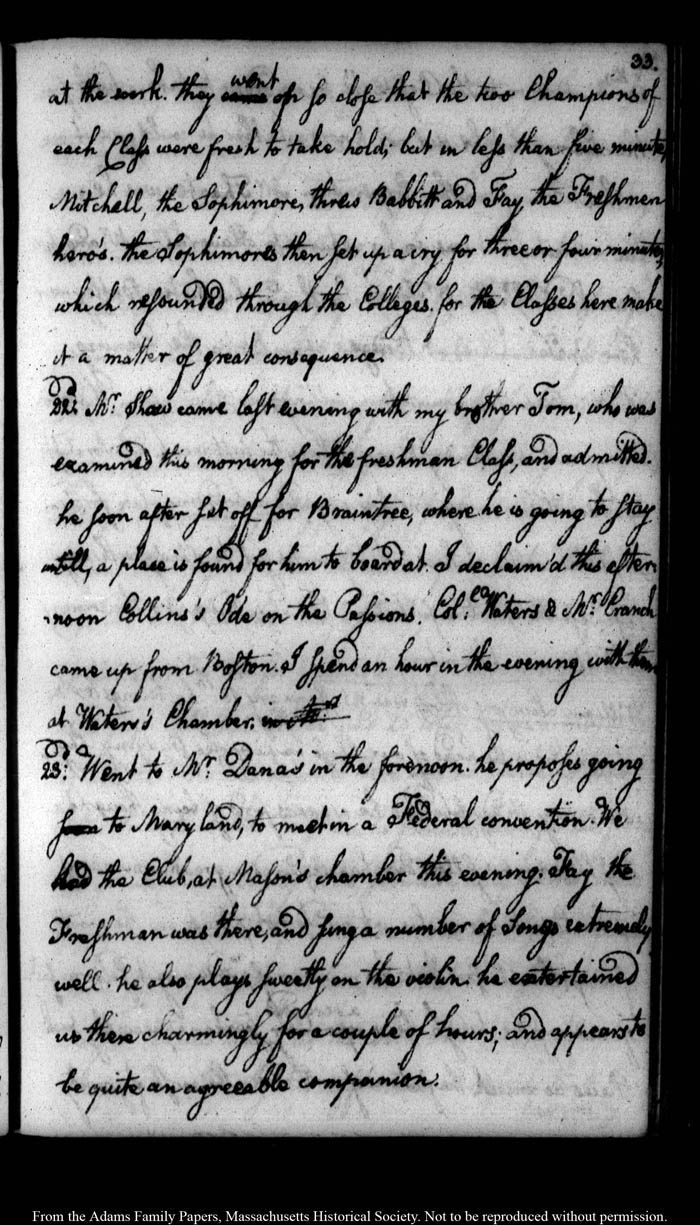 33.
at the work. they came went off so close that the two Champions of
each Class were fresh to take hold; but in less than five minutes,
Mitchell, the Sophimore, threw Babbitt and Fay, the Freshmen
hero's. the Sophimores then set up a cry for three or four minutes,
which resounded through the Colleges. for the Classes here make
it a matter of great consequence.
22d: Mr. Shaw came last evening with my brother Tom, who was
examined this morning for the freshman Class, and admitted.
he soon after set off for Braintree, where he is going to stay
untill, a place is found for him to board at. I declaim'd this after-
-noon Collins's Ode on the Passions. Coll: Waters & Mr. Cranch
came up from Boston. I spend an hour in the evening with them
at Waters's Chamber.
23d: Went to Mr. Dana's in the forenoon. he proposes going
soon to Maryland, to meet in a Federal convention. We
had the Club, at Mason's chamber this evening. Fay the
Freshman was there, and sung a number of Songs extremely
well. he also plays sweetly on the violin. he entertained
us there charmingly for a couple of hours; and appears to
be quite an agreeable companion.
From the Adams Family Papers, Massachusetts Historical Society. Not to be reproduced without permission.